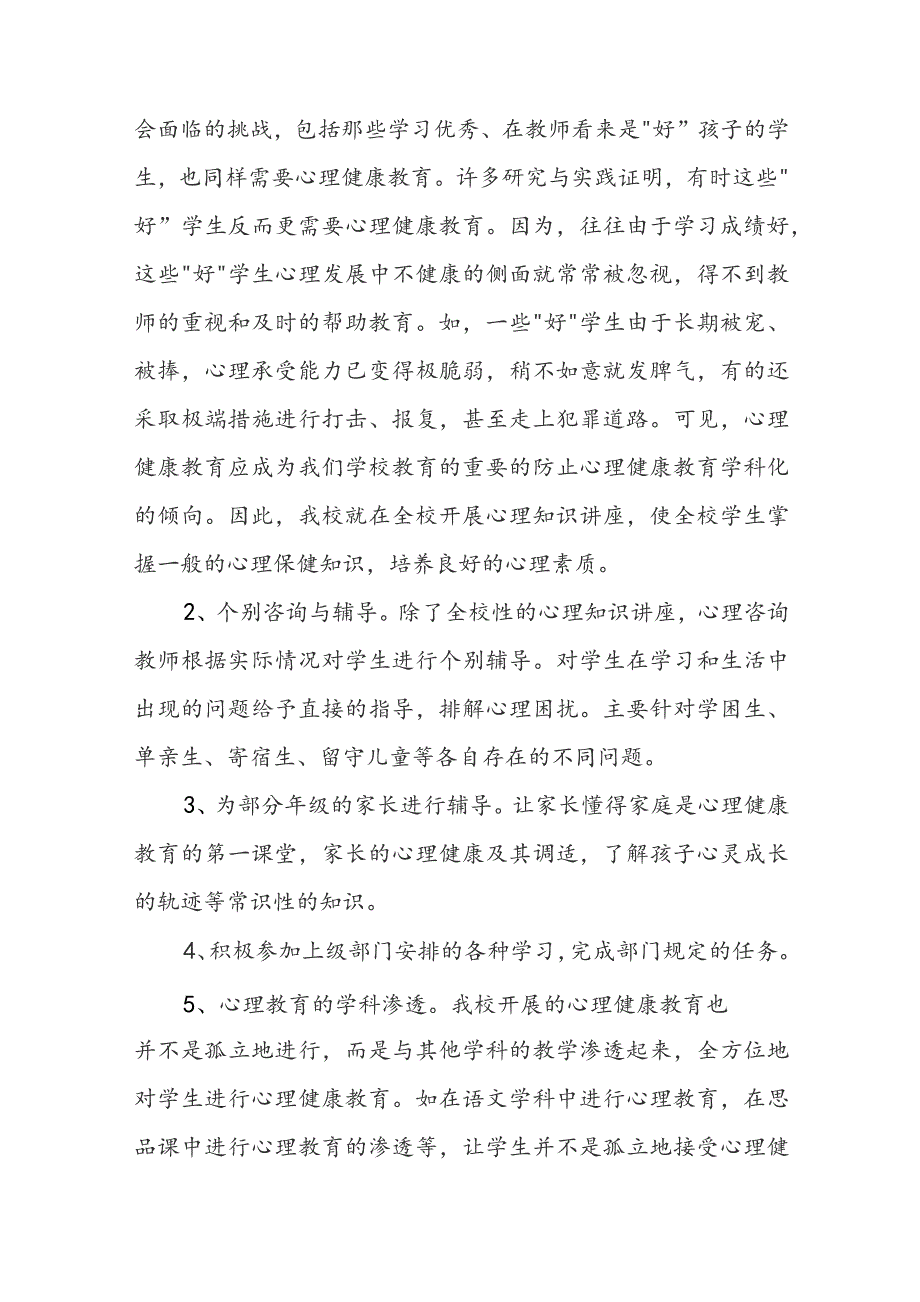 会面临的挑战，包括那些学习优秀、在教师看来是"好”孩子的学
生，也同样需要心理健康教育。许多研究与实践证明，有时这些"
好”学生反而更需要心理健康教育。因为，往往由于学习成绩好，
这些"好"学生心理发展中不健康的侧面就常常被忽视，得不到教
师的重视和及时的帮助教育。如，一些"好"学生由于长期被宠、
被捧，心理承受能力已变得极脆弱，稍不如意就发脾气，有的还
采取极端措施进行打击、报复，甚至走上犯罪道路。可见，心理
健康教育应成为我们学校教育的重要的防止心理健康教育学科化
的倾向。因此，我校就在全校开展心理知识讲座，使全校学生掌
握一般的心理保健知识，培养良好的心理素质。
2、个别咨询与辅导。除了全校性的心理知识讲座，心理咨询
教师根据实际情况对学生进行个别辅导。对学生在学习和生活中
出现的问题给予直接的指导，排解心理困扰。主要针对学困生、
单亲生、寄宿生、留守儿童等各自存在的不同问题。
3、为部分年级的家长进行辅导。让家长懂得家庭是心理健康
教育的第一课堂，家长的心理健康及其调适，了解孩子心灵成长
的轨迹等常识性的知识。
4、积极参加上级部门安排的各种学习，完成部门规定的任务。
5、心理教育的学科渗透。我校开展的心理健康教育也
并不是孤立地进行，而是与其他学科的教学渗透起来，全方位地
对学生进行心理健康教育。如在语文学科中进行心理教育，在思
品课中进行心理教育的渗透等，让学生并不是孤立地接受心理健